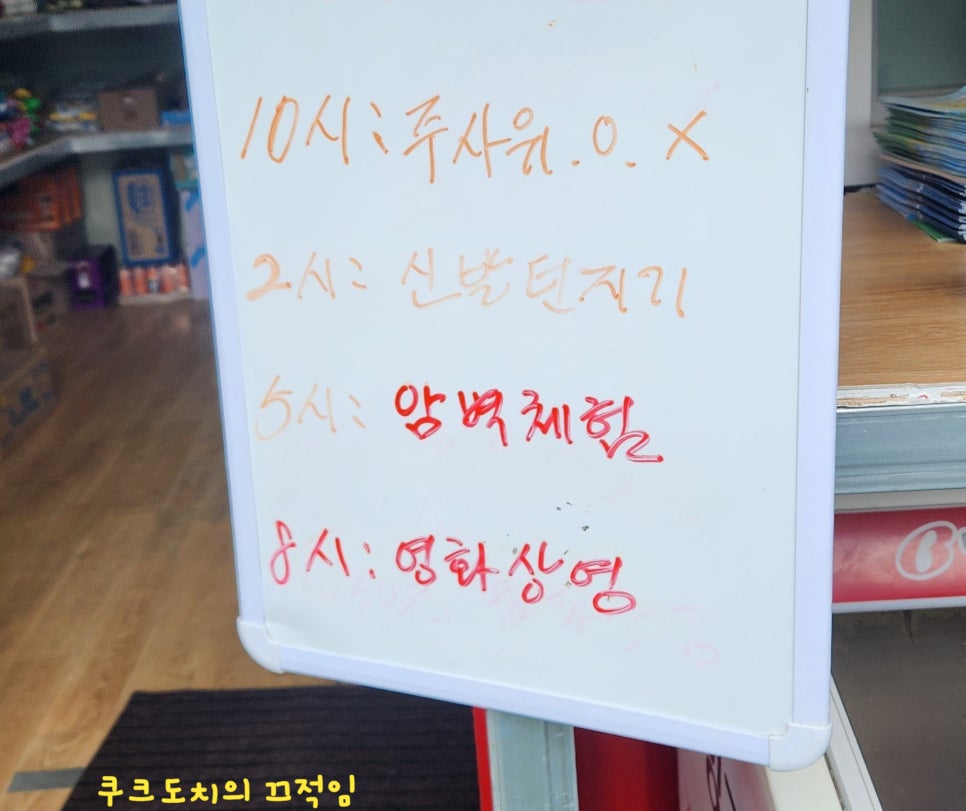 10시: 주사위.O.X
2시: 신발던지기
5시: 암벽체험
8시: 영화상영
쿠크도치의 끄적임